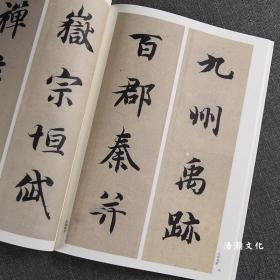 九州禹跡
百郡秦并
嶽宗恒岱
禅
浩瀚文化